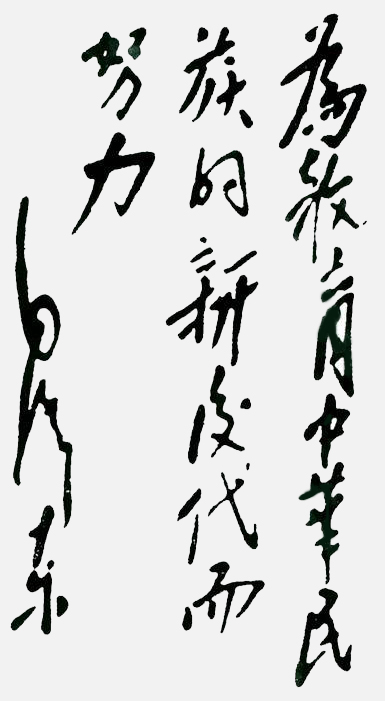 為教育中華民
族的新後代而
努力
毛澤東